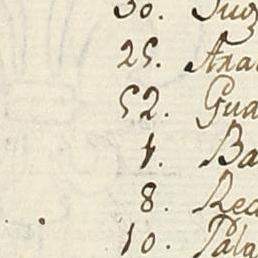 30. Juz
25. Ara
52. Gua
1. Ba
8. Rea
10. Pala